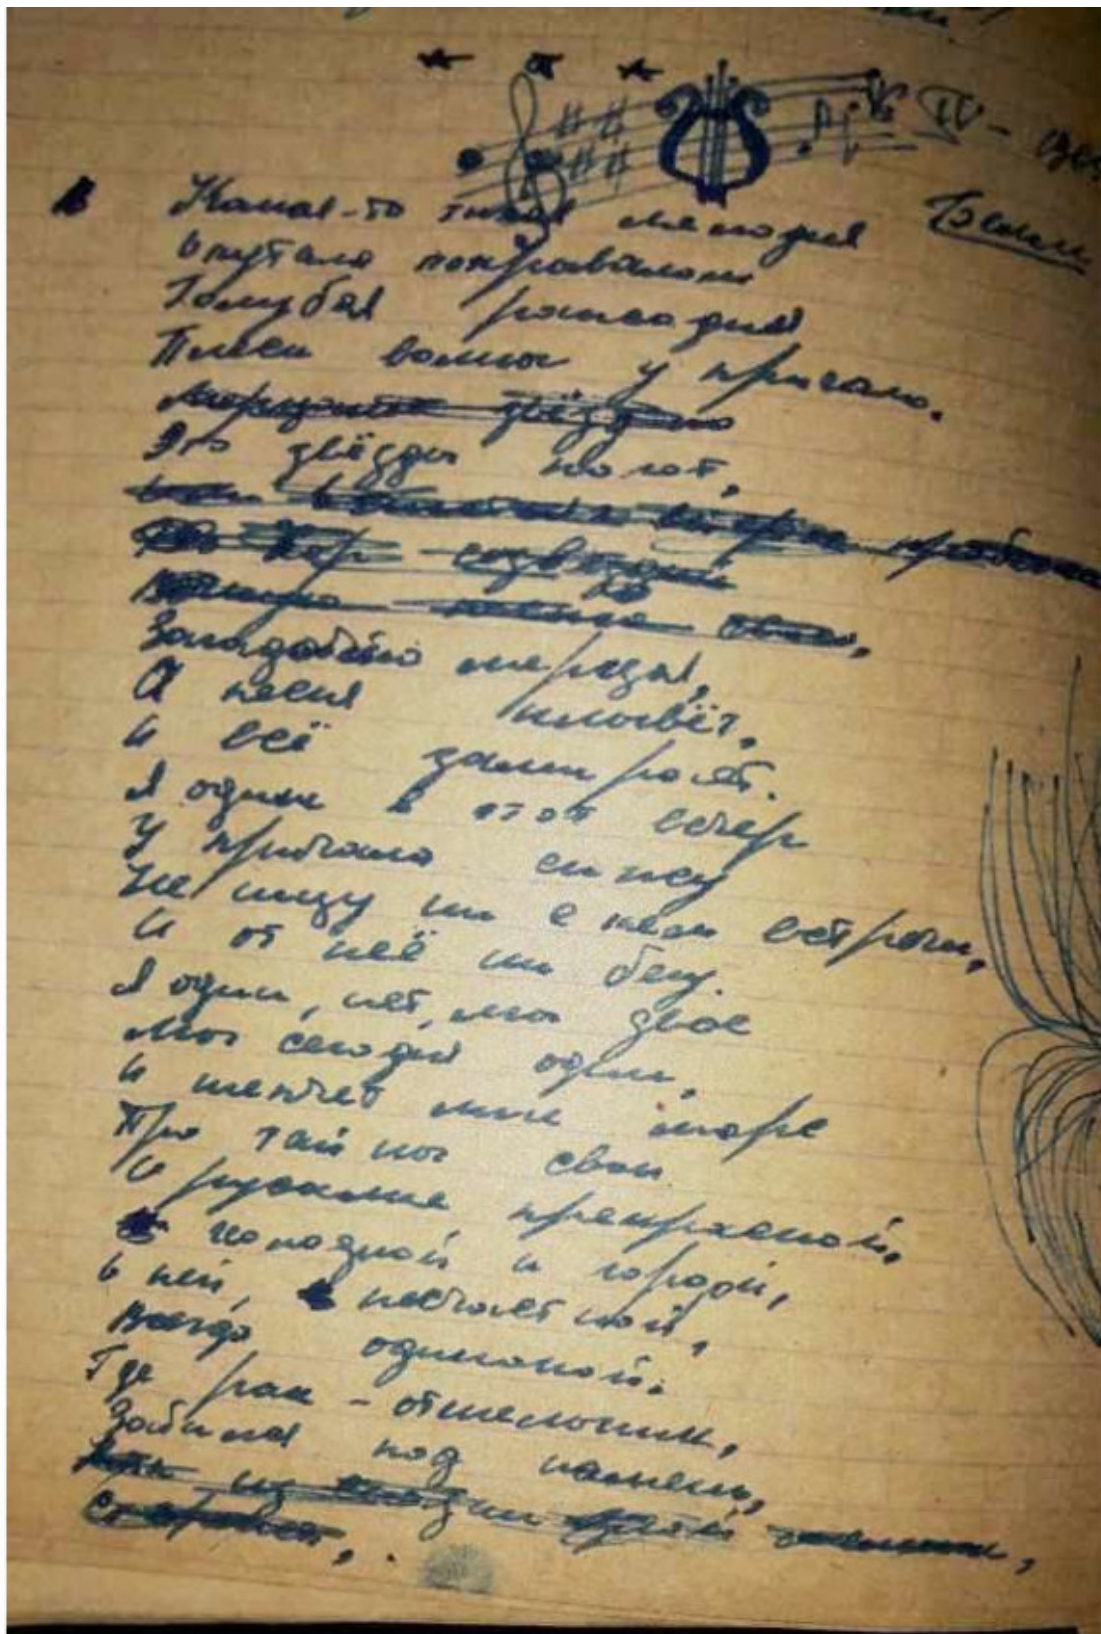 IV –
Какая-то тихая мелодия
Опутала покрывалом
Голубая рапсодия
Плеск волны у причала.
Это звёзды поют,
Загадочно мерцая,
А песня плывёт,
И всё замирает.
Я один в этот вечер
У причала сижу
Не ищу ни с кем встречи,
И от неё ни бегу.
Я один, нет, мы двое
Мы сегодня одни,
И шепчет мне море
Про тайны свои.
О русалке прекрасной,
холодной и гордой,
О ней, несчастной,
Всегда одинокой.
Где рак-отшельник,
Забился под камень,